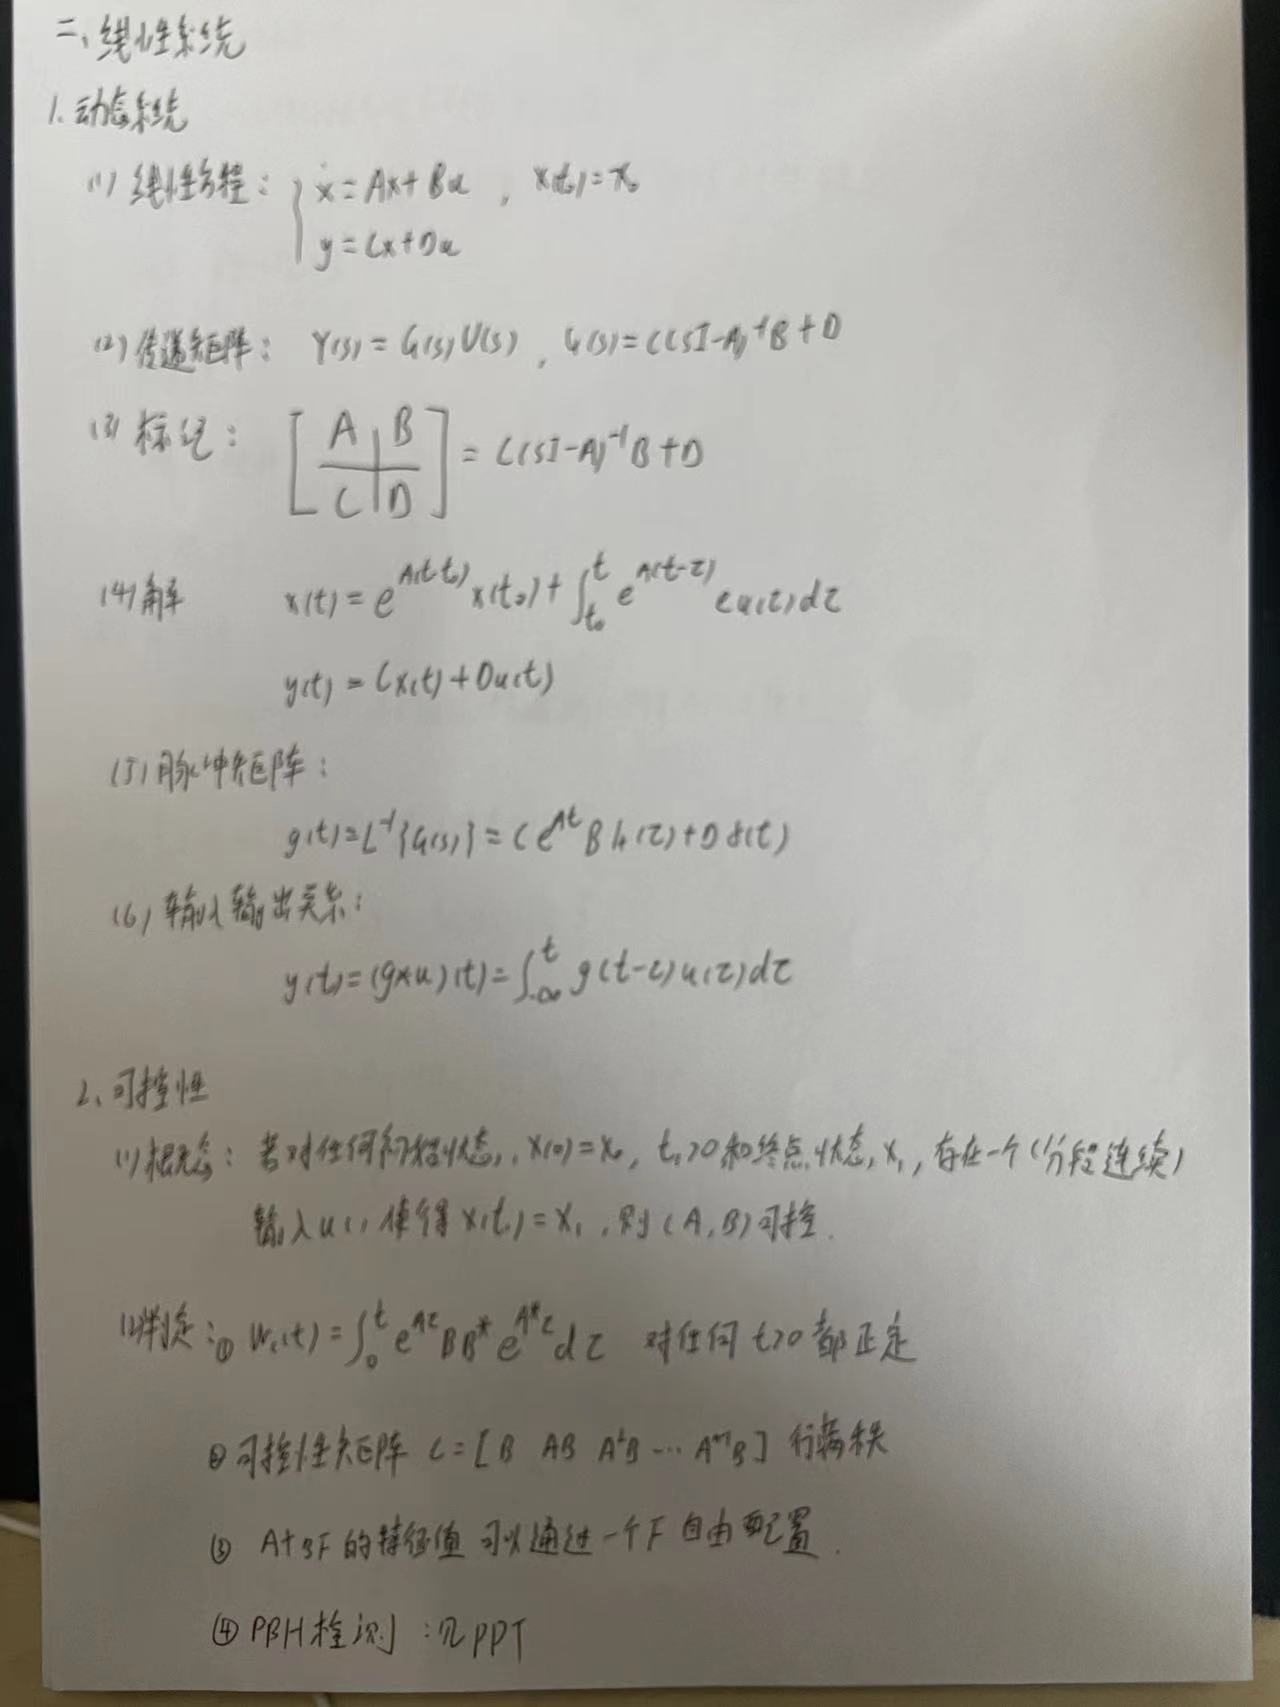 二、线性系统
1.动态系统
(1) 线性方程: { ẋ=Ax+Bu , x(t₀)=x₀
y=Cx+Du
(2) 传递矩阵: Y(s)=G(s)U(s) , G(s)=C(sI-A)⁻¹B+D
(3) 标记: [A B
C D] = C(sI-A)⁻¹B+D
(4) 解 x(t)=e^{A(t-t₀)}x(t₀)+∫_{t₀}^{t} e^{A(t-τ)} eu(τ)dτ
y(t)=Cx(t)+Du(t)
(5) 脉冲矩阵:
g(t)=L⁻¹{G(s)}=Ce^{At}Bh(τ)+Dδ(t)
(6) 输入输出关系:
y(t)=(g*u)(t)=∫_{-∞}^{t} g(t-τ)u(τ)dτ
2、可控性
(1) 概念: 若对任何初始状态, x(0)=x₀, t₁>0和终点状态, x₁, 存在一个(分段连续)
输入u(), 使得x(t₁)=x₁, 则(A,B)可控.
(2)判定:① Wc(t)=∫_{0}^{t} e^{Aτ}BB*e^{A*τ}dτ 对任何t>0都正定
② 可控性矩阵 C=[B AB A²B ⋯ Aⁿ⁻¹B] 行满秩
③ A+BF的特征值可以通过一个F自由配置.
④ PBH检测:见PPT